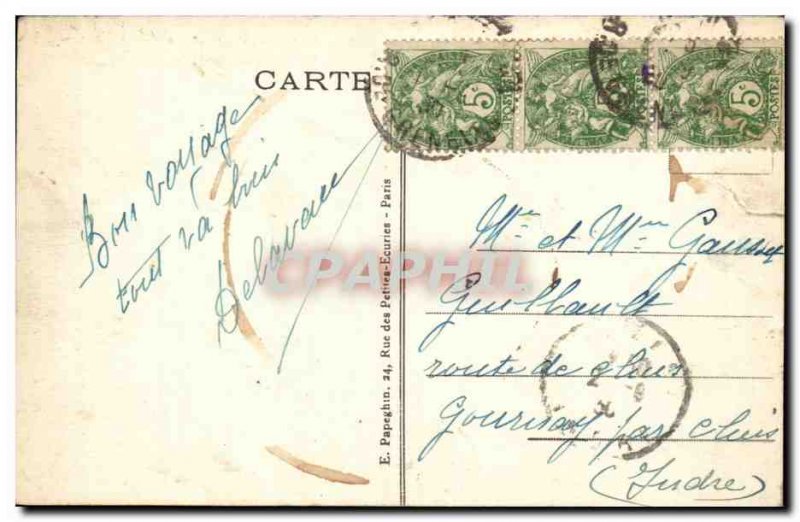 CARTE
5
5
5
POSTES
POSTES
POSTES
Bon voyage
tout va bien
Delavau
E. Papeghin. 24, Rue des Petites-Ecuries - Paris
CPAPHIL
Mr et Mme
Guilbault
route de cluis
Gournay par cluis
(Indre)